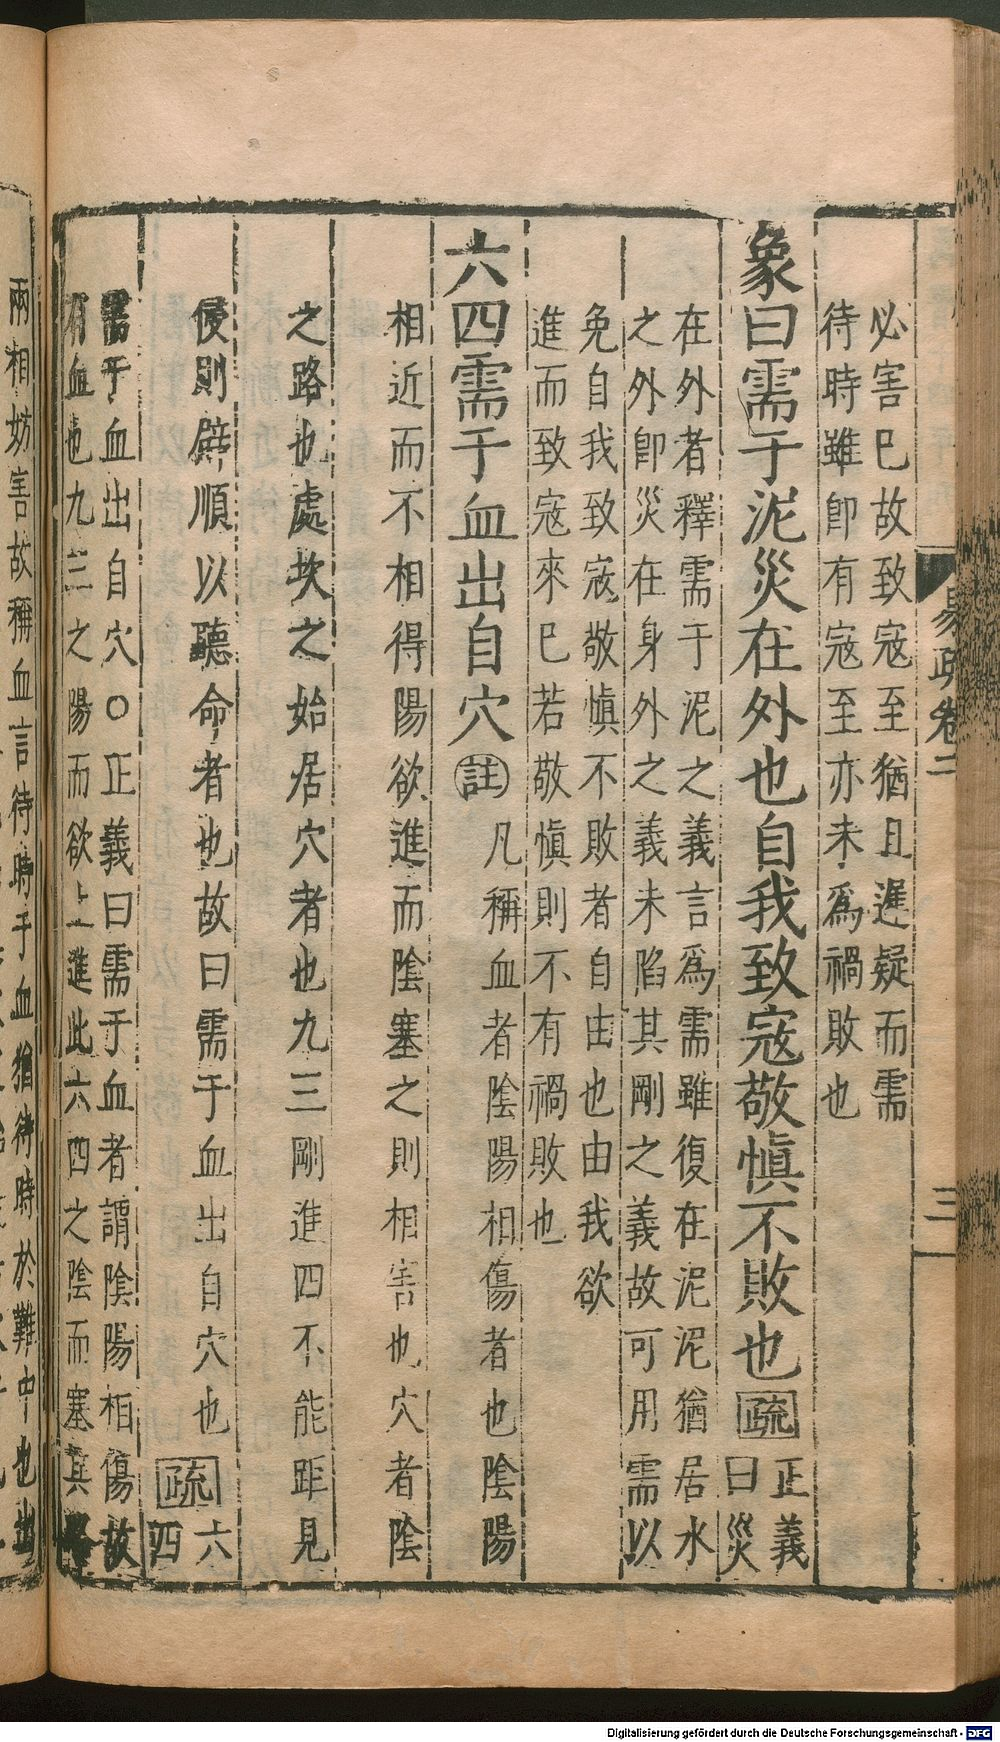 易疏卷二
三
必害巳故致寇至猶且遲疑而需
待時雖卽有寇至亦未爲禍敗也
象曰需于泥災在外也自我致寇敬愼不敗也疏正義
曰災
在外者釋需于泥之義言爲需雖復在泥泥猶居水
之外卽災在身外之義未陷其剛之義故可用需以
免自我致寇敬愼不敗者自由也由我欲
進而致寇來巳若敬愼則不有禍敗也
六四需于血出自穴註凡稱血者陰陽相傷者也陰陽
相近而不相得陽欲進而陰塞之則相害也穴者陰
之路也處坎之始居穴者也九三剛進四不能距見
侵則辟順以聽命者也故曰需于血出自穴也疏六
四
需于血出自穴○正義曰需于血者謂陰陽相傷故
有血也九三之陽而欲上進此六四之陰而塞其路
兩相妨害故稱血言待時于血猶待時於難中也出
Digitalisierung gefördert durch die Deutsche Forschungsgemeinschaft - DFG